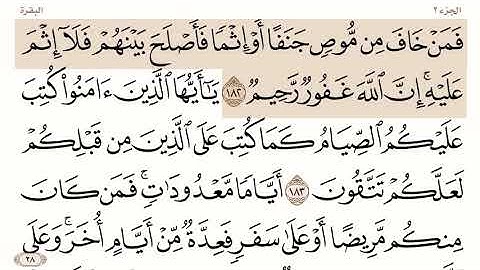 الجزء ٢ البقرة
فَمَنْ خَافَ مِن مُّوصٍ جَنَفًا أَوْ إِثْمًا فَأَصْلَحَ بَيْنَهُمْ فَلَآ إِثْمَ
عَلَيْهِ ۚ إِنَّ ٱللَّهَ غَفُورٌ رَّحِيمٌ ١٨٢ يَـٰٓأَيُّهَا ٱلَّذِينَ ءَامَنُوا۟ كُتِبَ
عَلَيْكُمُ ٱلصِّيَامُ كَمَا كُتِبَ عَلَى ٱلَّذِينَ مِن قَبْلِكُمْ
لَعَلَّكُمْ تَتَّقُونَ ١٨٣ أَيَّامًا مَّعْدُودَٰتٍ ۚ فَمَن كَانَ
مِنكُم مَّرِيضًا أَوْ عَلَىٰ سَفَرٍ فَعِدَّةٌ مِّنْ أَيَّامٍ أُخَرَ ۚ وَعَلَى
٢٨